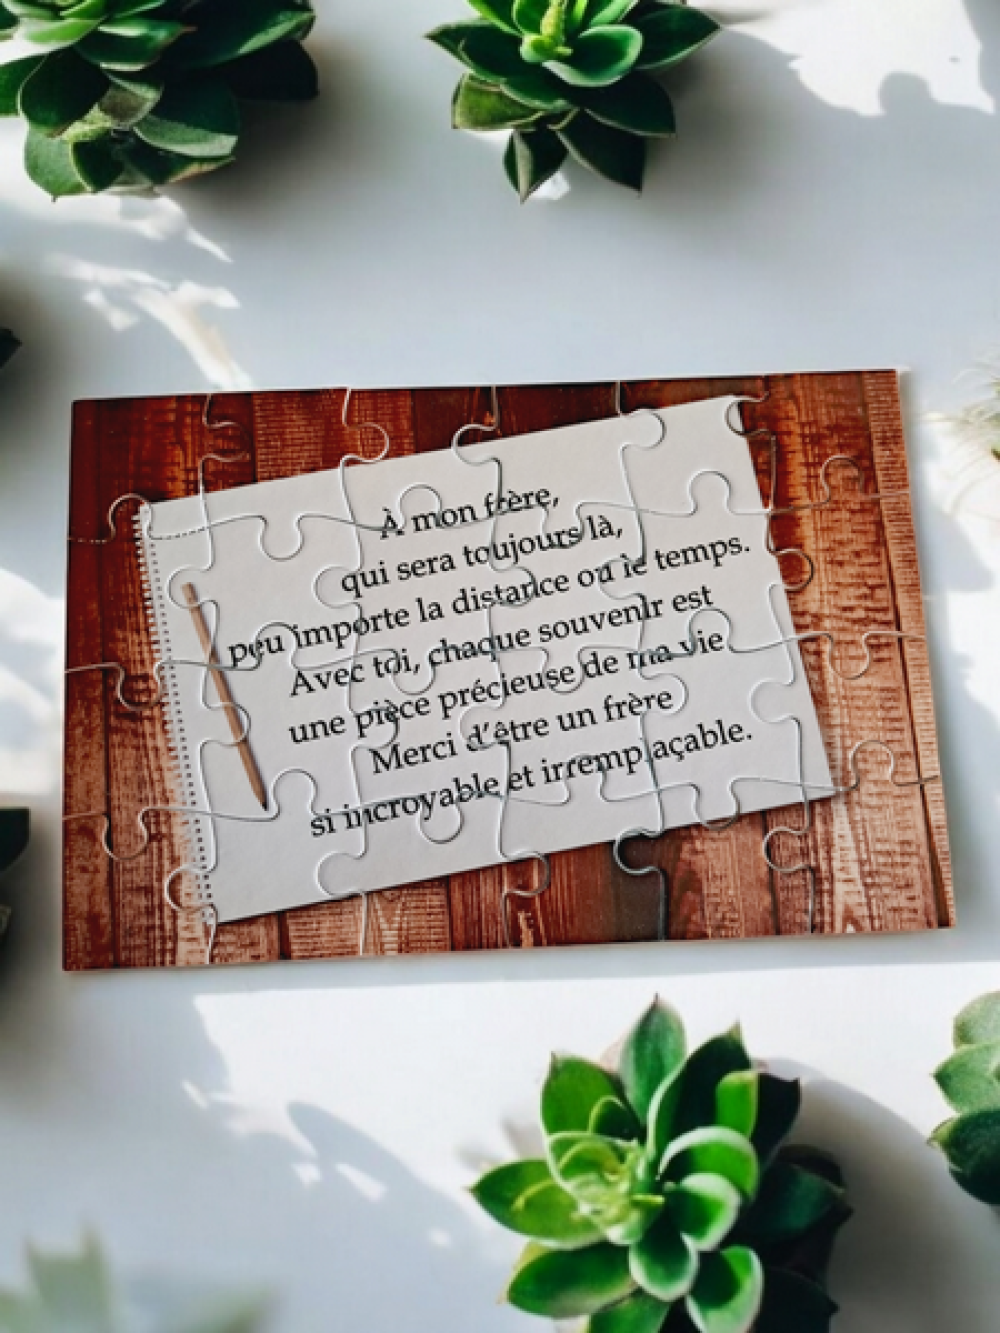 À mon frère,
qui sera toujours là,
peu importe la distance ou le temps.
Avec toi, chaque souvenir est
une pièce précieuse de ma vie
Merci d'être un frère
si incroyable et irremplaçable.